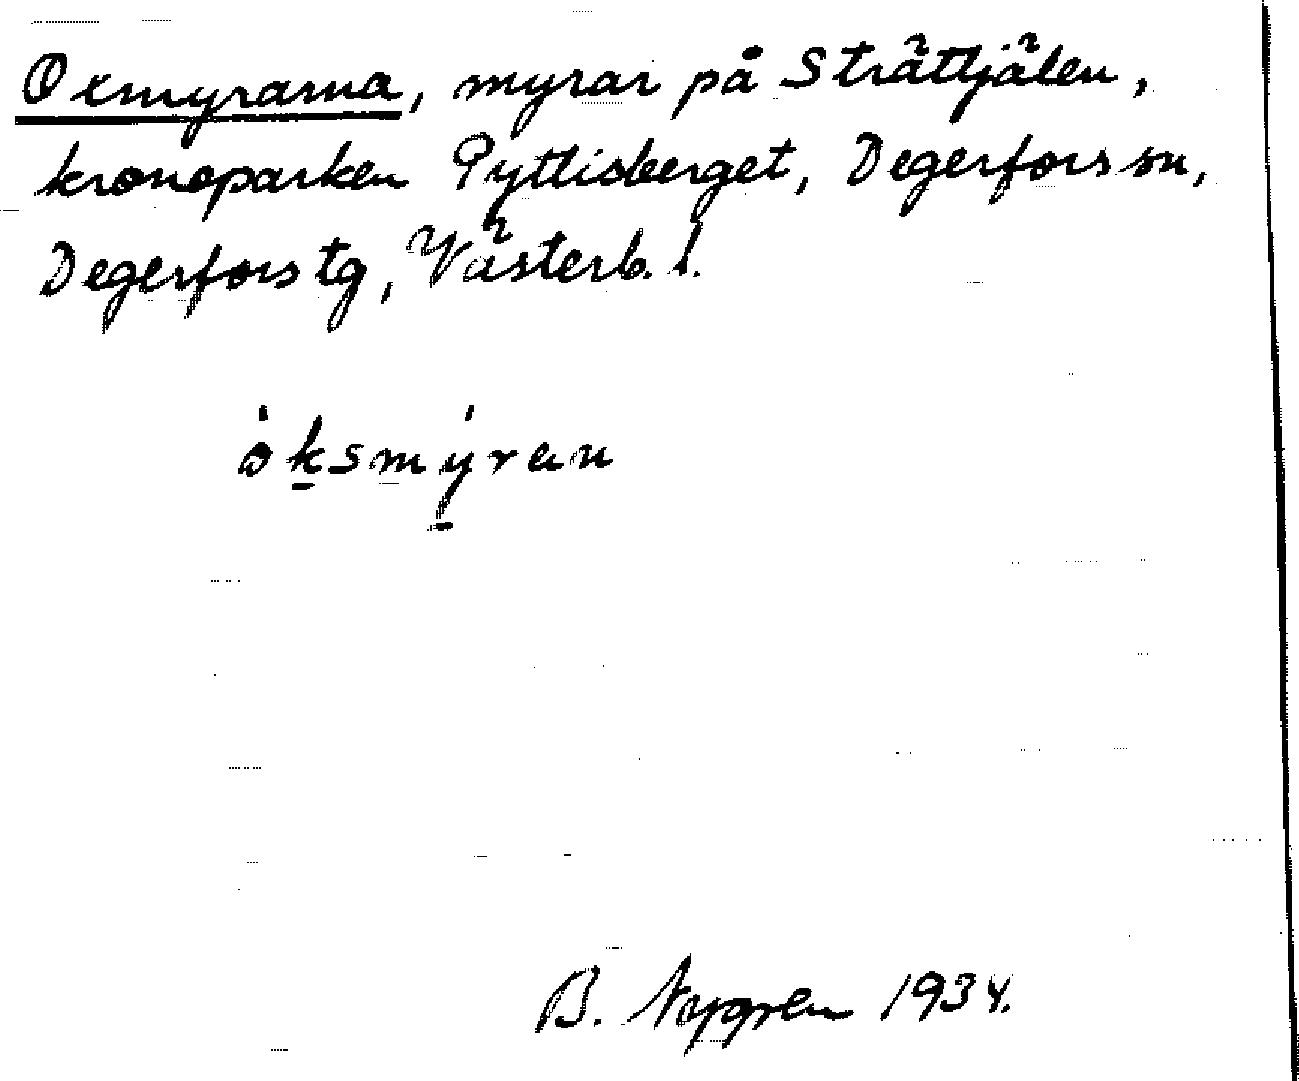 Oxmyrarna, myrar på Strättjälen,
kronoparken Pyttisberget, Degerfors sn,
Degerfors tg, Västerb. l.
òksmýran
B. Nygren 1934.